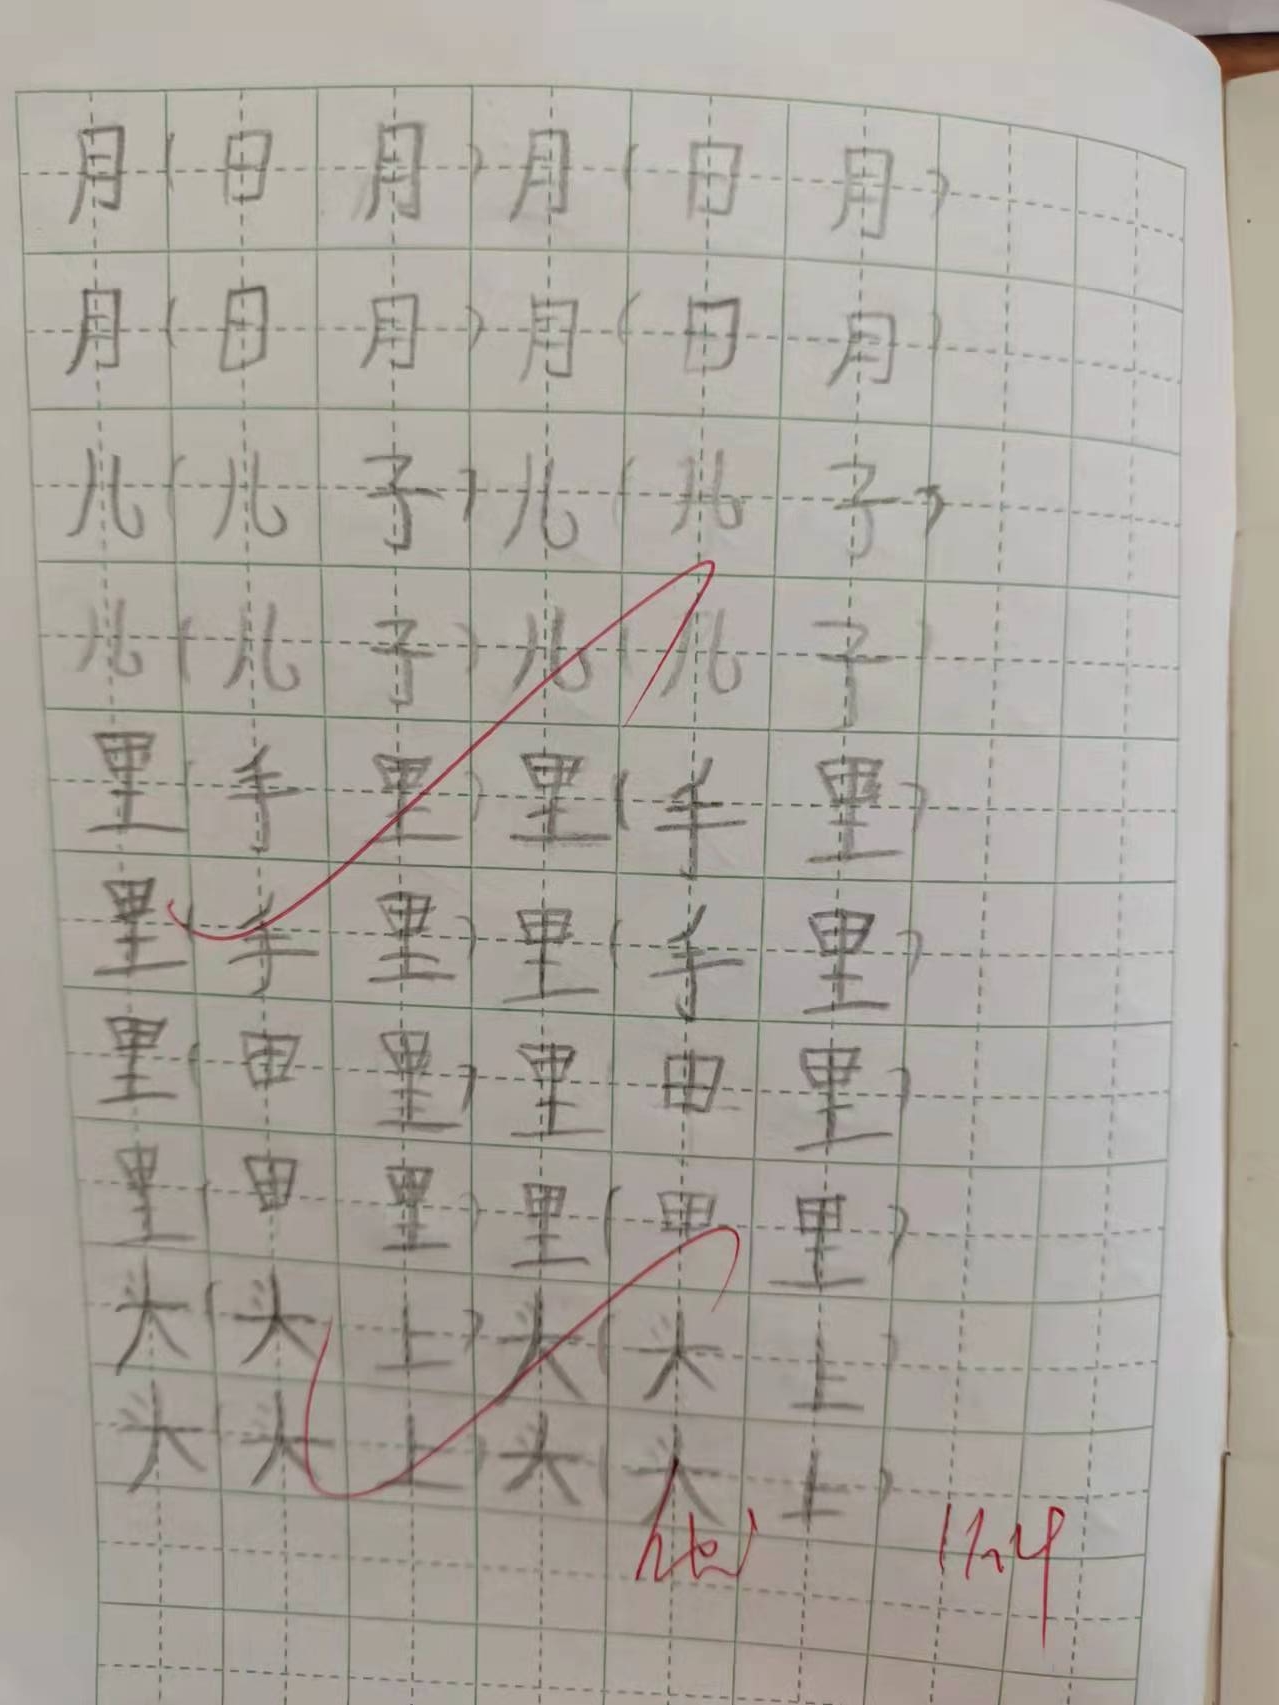 月(日月)月(日月)
月(日月)月(日月)
儿(儿子)儿(儿子)
儿(儿子)儿(儿子)
里(手里)里(手里)
里(手里)里(手里)
里(田里)里 田里)
里(田里)里(田里)
头(头上)头(头上)
头 头上)头(头上)
11.24